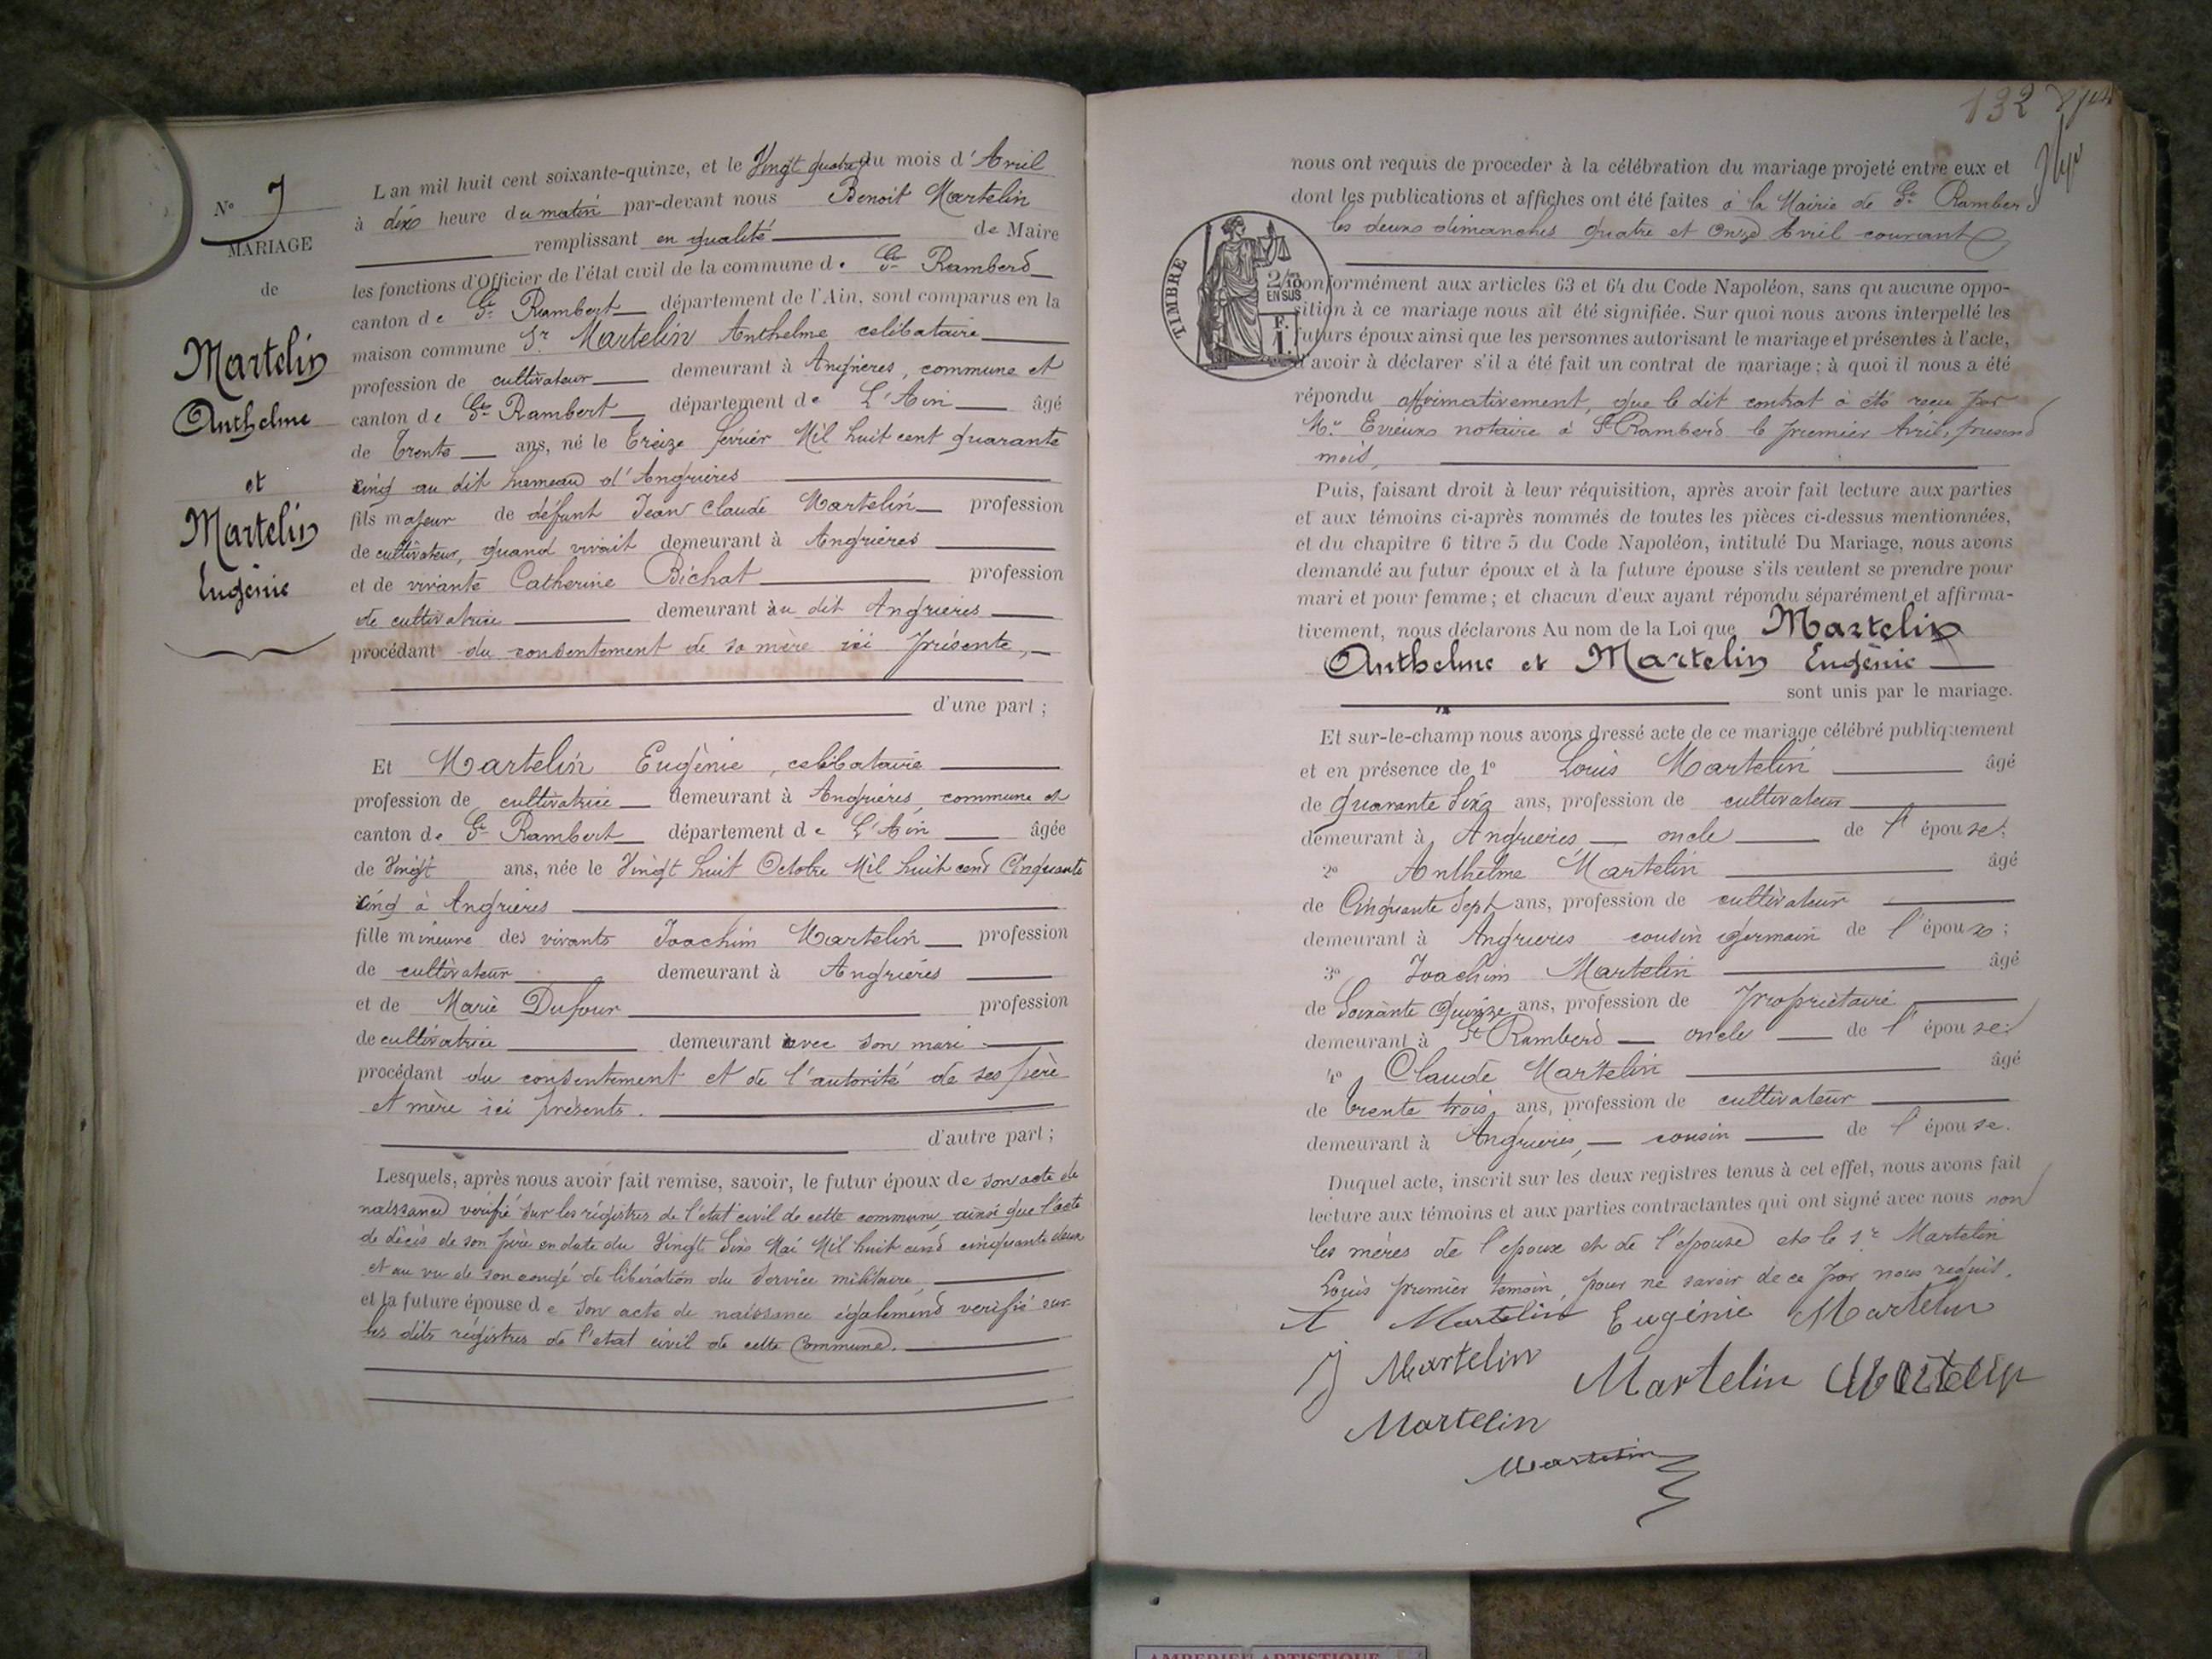 N° 7
MARIAGE
de
Martelin
Anthelme
et
Martelin
Eugénie
L'an mil huit cent soixante-quinze, et le Vingt quatre du mois d'Avril
à dix heure du matin par-devant nous Benoit Martelin
remplissant en qualité de Maire
les fonctions d'Officier de l'état civil de la commune de St Rambert
canton de St Rambert département de l'Ain, sont comparus en la
maison commune Sr Martelin Anthelme celibataire
profession de cultivateur demeurant à Angrières, commune et
canton de St Rambert département de L'Ain âgé
de Trente ans, né le Treize fevrier Mil huit cent quarante
cinq au dit hameau d'Angrières
fils majeur de défunt Jean Claude Martelin profession
de cultivateur, quand vivait demeurant à Angrières
et de vivante Catherine Bichat profession
de cultivatrice demeurant au dit Angrières
procédant du consentement de sa mère ici présente,
d'une part ;
Et Martelin Eugènie, celibataire
profession de cultivatrice demeurant à Angrières, commune et
canton de St Rambert département de L'Ain âgée
de Vingt ans, née le Vingt huit Octobre Mil huit cent Cinquante
cinq à Angrières
fille mineure des vivants Joachim Martelin profession
de cultivateur demeurant à Angrières
et de Marie Dufour profession
de cultivatrice demeurant avec son mari
procédant du consentement et de l'autorité de ses père
et mère ici présents.
d'autre part ;
Lesquels, après nous avoir fait remise, savoir, le futur époux de son acte de
naissance vérifié sur les régistres de l'etat civil de cette commune, ainsi que l'acte
de décès de son père en date du Vingt Six Mai Mil huit cent cinquante deux
et au vu de son congé de libération du Service militaire,
et la future épouse de son acte de naissance également verifié sur
les dits régistres de l'etat civil de cette Commune.
132
nous ont requis de proceder à la célébration du mariage projeté entre eux et
dont les publications et affiches ont été faites à la Mairie de St Rambert
les deux dimanches quatre et Onze Avril courant
TIMBRE
2/10 EN SUS
F. 1.
conformément aux articles 63 et 64 du Code Napoléon, sans qu'aucune oppo-
sition à ce mariage nous ait été signifiée. Sur quoi nous avons interpellé les
futurs époux ainsi que les personnes autorisant le mariage et présentes à l'acte,
d'avoir à déclarer s'il a été fait un contrat de mariage ; à quoi il nous a été
répondu affirmativement, que le dit contrat à été recu par
Me Evieux notaire à St Rambert le premier Avril, present
mois,
Puis, faisant droit à leur réquisition, après avoir fait lecture aux parties
et aux témoins ci-après nommés de toutes les pièces ci-dessus mentionnées,
et du chapitre 6 titre 5 du Code Napoléon, intitulé Du Mariage, nous avons
demandé au futur époux et à la future épouse s'ils veulent se prendre pour
mari et pour femme ; et chacun d'eux ayant répondu séparément et affirma-
tivement, nous déclarons Au nom de la Loi que Martelin
Anthelme et Martelin Eugénie
sont unis par le mariage.
Et sur-le-champ nous avons dressé acte de ce mariage célébré publiquement
et en présence de 1° Louis Martelin âgé
de quarante Six ans, profession de cultivateur
demeurant à Angrieres oncle de l'épouse ;
2° Anthelme Martelin âgé
de Cinquante Sept ans, profession de cultivateur
demeurant à Angrieres cousin germain de l'épouse ;
3° Joachim Martelin âgé
de Soixante Quinze ans, profession de Propriètaire
demeurant à St Rambert oncle de l'épouse ;
4° Claude Martelin âgé
de trente trois ans, profession de cultivateur
demeurant à Angrieres, cousin de l'épouse.
Duquel acte, inscrit sur les deux registres tenus à cet effet, nous avons fait
lecture aux témoins et aux parties contractantes qui ont signé avec nous non
les mères de l'epoux et de l'épouse et le Sr Martelin
Louis premier temoin, pour ne savoir de ce par nous requis.
A Martelin Eugénie Martelin
J Martelin Martelin Martelin
Martelin
Martelin
AMBERIEU ARTISTIQUE